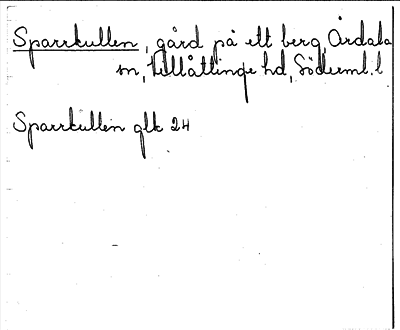 Sparrkullen, gård på ett berg, Årdala
sn, Villåttinge hd, Söderml. l
Sparrkullen glk 24